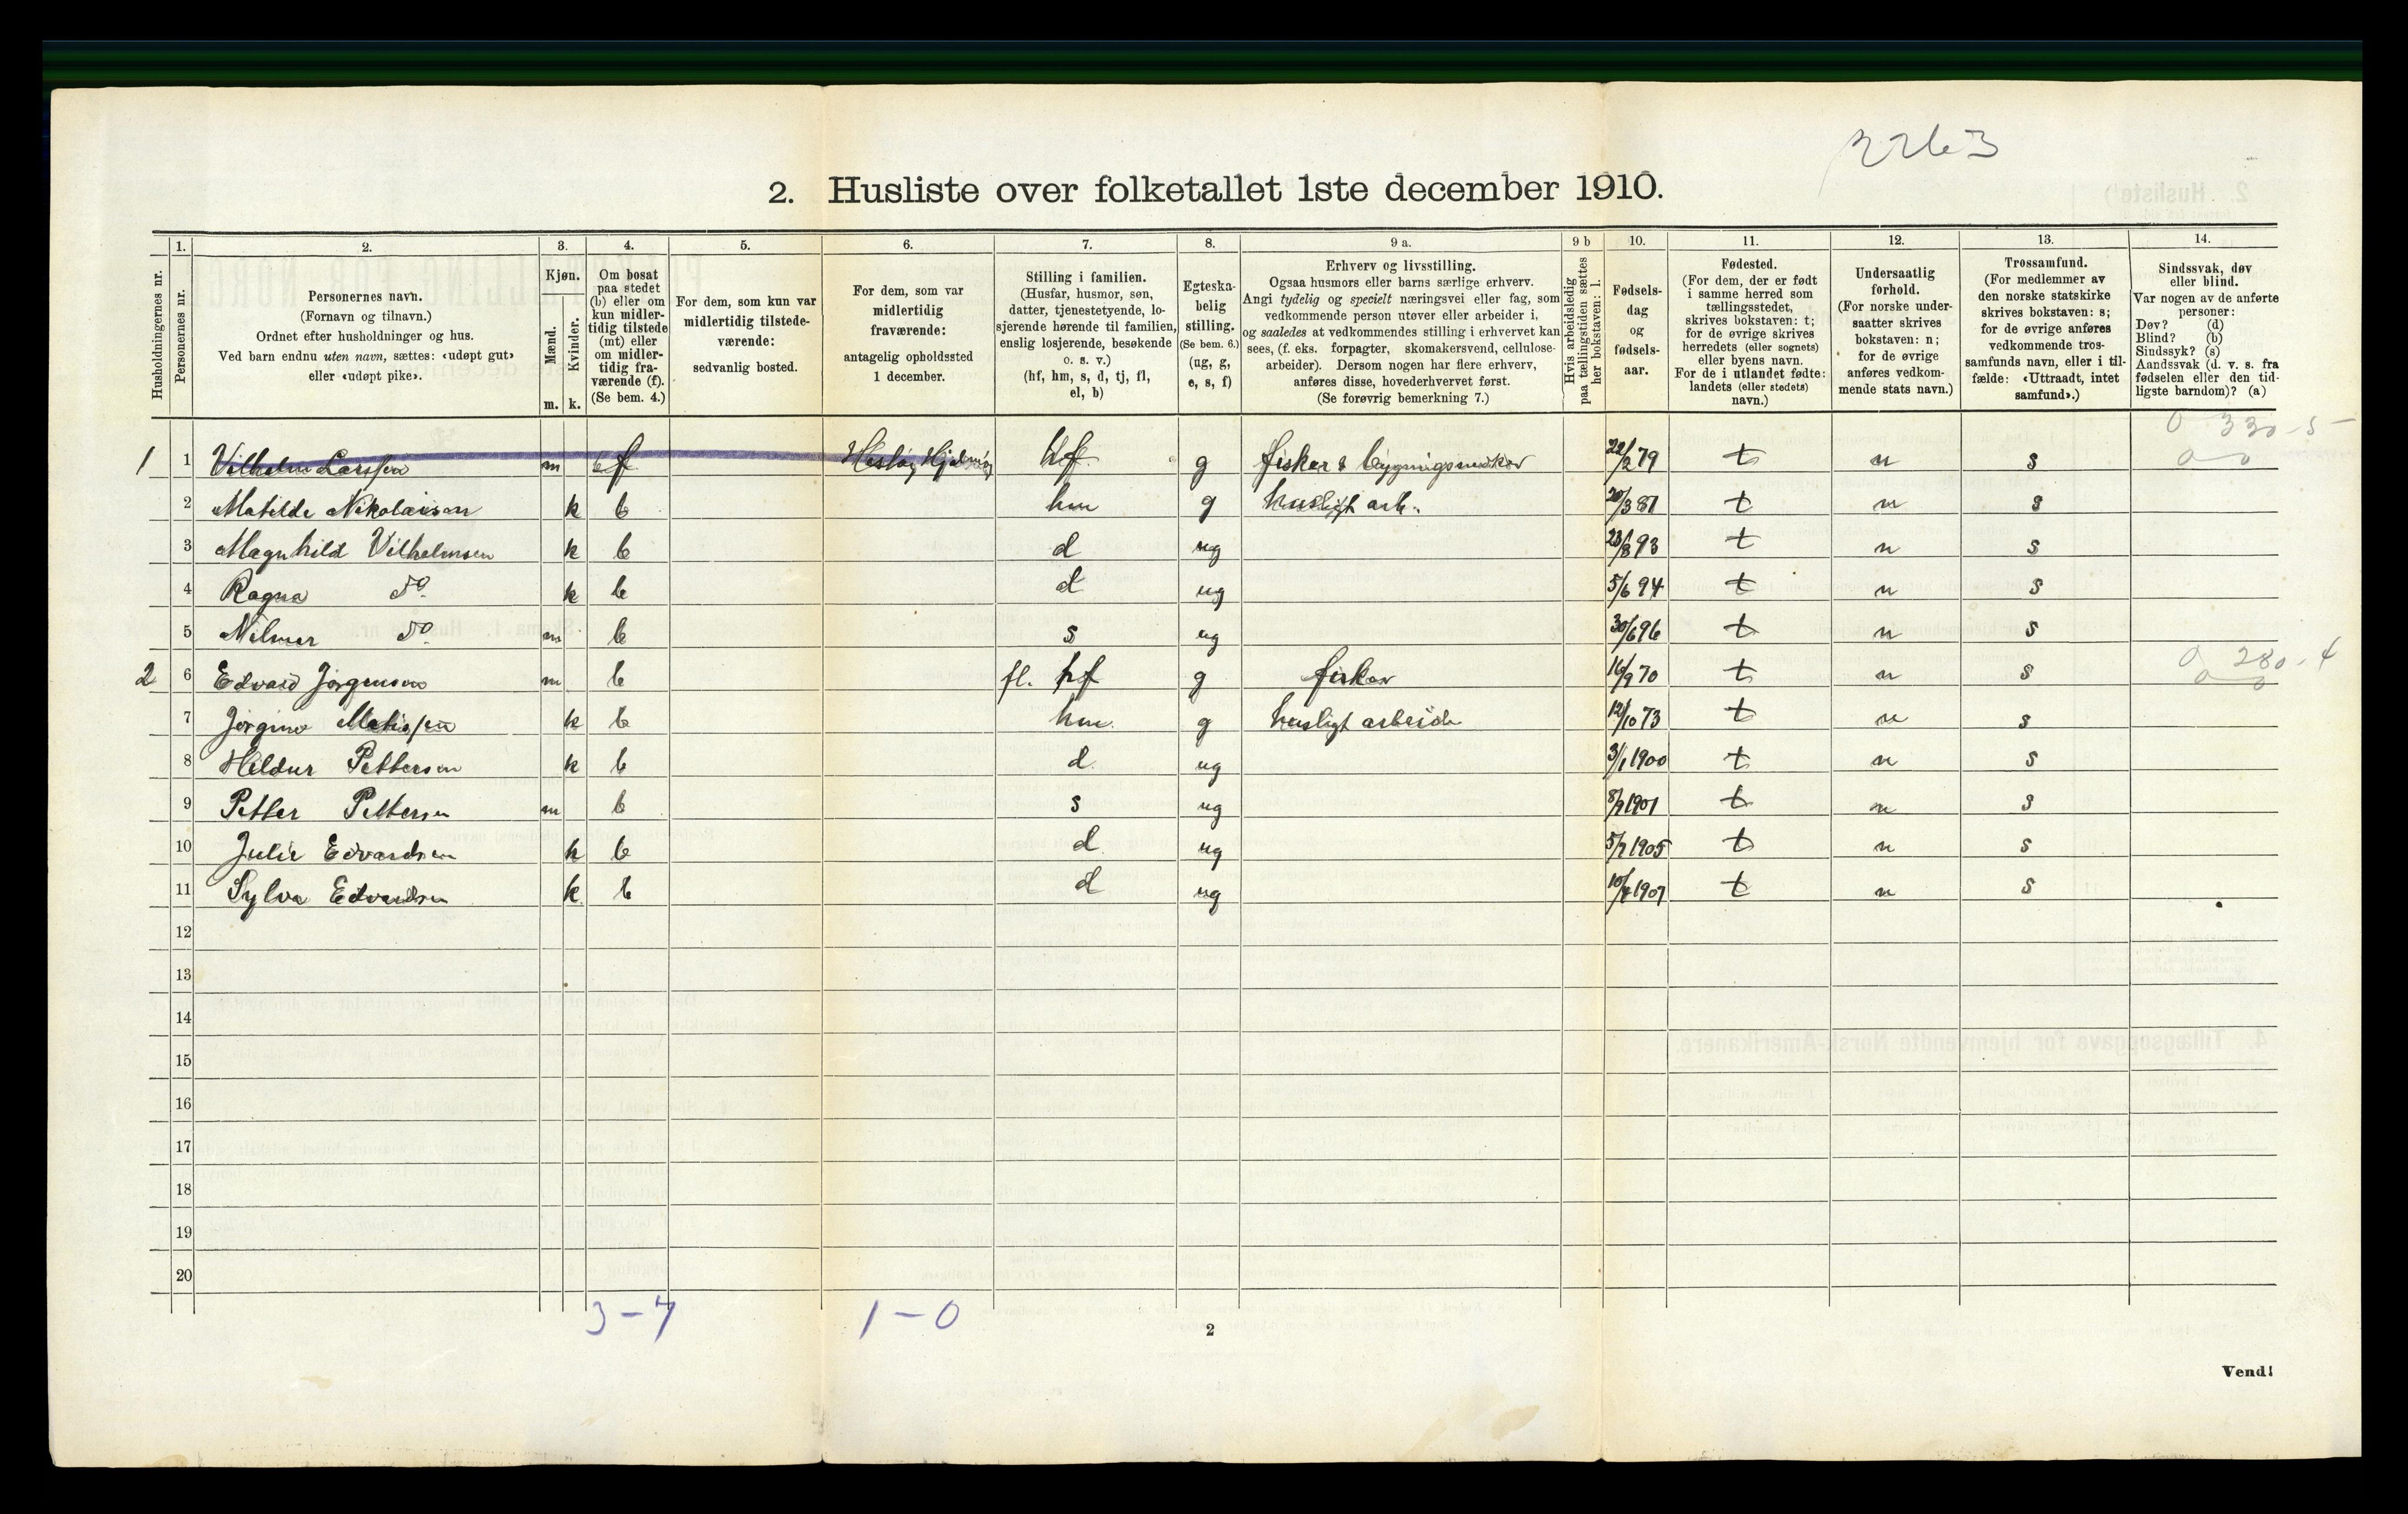 2263
2. Husliste over folketallet 1ste december 1910.
Husholdningernes nr.
1.
Personernes nr.
2.
Personernes navn.
(Fornavn og tilnavn.)
Ordnet efter husholdninger og hus.
Ved barn endnu uten navn, sættes: «udøpt gut»
eller «udøpt pike».
3.
Kjøn.
Mænd.
Kvinder.
m. k.
4.
Om bosat
paa stedet
(b) eller om
kun midler-
tidig tilstede
(mt) eller
om midler-
tidig fra-
værende (f).
(Se bem. 4.)
5.
For dem, som kun var
midlertidig tilstede-
værende:
sedvanlig bosted.
6.
For dem, som var
midlertidig
fraværende:
antagelig opholdssted
1 december.
7.
Stilling i familien.
(Husfar, husmor, søn,
datter, tjenestetyende, lo-
sjerende hørende til familien,
enslig losjerende, besøkende
o. s. v.)
(hf, hm, s, d, tj, fl,
el, b)
8.
Egteska-
belig
stilling.
(Se bem. 6.)
(ug, g,
e, s, f)
9 a.
Erhverv og livsstilling.
Ogsaa husmors eller barns særlige erhverv.
Angi tydelig og specielt næringsvei eller fag, som
vedkommende person utøver eller arbeider i,
og saaledes at vedkommendes stilling i erhvervet kan
sees, (f. eks. forpagter, skomakersvend, cellulose-
arbeider). Dersom nogen har flere erhverv,
anføres disse, hovederhvervet først.
(Se forøvrig bemerkning 7.)
9 b
Hvis arbeidsledig
paa tællingstiden sættes
her bokstaven: l.
10.
Fødsels-
dag
og
fødsels-
aar.
11.
Fødested.
(For dem, der er født
i samme herred som
tællingsstedet,
skrives bokstaven: t;
for de øvrige skrives
herredets (eller sognets)
eller byens navn.
For de i utlandet fødte:
landets (eller stedets)
navn.)
12.
Undersaatlig
forhold.
(For norske under-
saatter skrives
bokstaven: n;
for de øvrige
anføres vedkom-
mende stats navn.)
13.
Trossamfund.
(For medlemmer av
den norske statskirke
skrives bokstaven: s;
for de øvrige anføres
vedkommende tros-
samfunds navn, eller i til-
fælde: «Uttraadt, intet
samfund».)
14.
Sindssvak, døv
eller blind.
Var nogen av de anførte
personer:
Døv? (d)
Blind? (b)
Sindssyk? (s)
Aandssvak (d. v. s. fra
fødselen eller den tid-
ligste barndom)? (a)
0 330-5
1 1 Vilhelm Larssen m f hf g fisker & 22/2 79 t n s 0 0
2 Matilde Nikolaisen k b hm g husligt arb. 20/3 81 t n s
3 Magnhild Vilhelmsen k b d ug 23/8 93 t n s
4 Ragna do. k b d ug 5/6 94 t n s
5 do. m b s ug 30/6 96 t n s
0 280-4
2 6 Edvard Jørgensen m b fl. hf g fisker 16/9 70 t n s 0 0
7 Jørgine k b hm. g husligt arbeide 12/10 73 t n s
8 Hildur Pettersen k b d. ug 3/1 1900 t n s
9 Petter Pettersen m b s ug 8/9 1901 t n s
10 Julie Edvardsen k b d. ug 5/7 1905 t n s
11 Sylva Edvardsen k b d ug 1907 t n s
12
13
14
15
16
17
18
19
20
3-7 1-0
2
Vend!